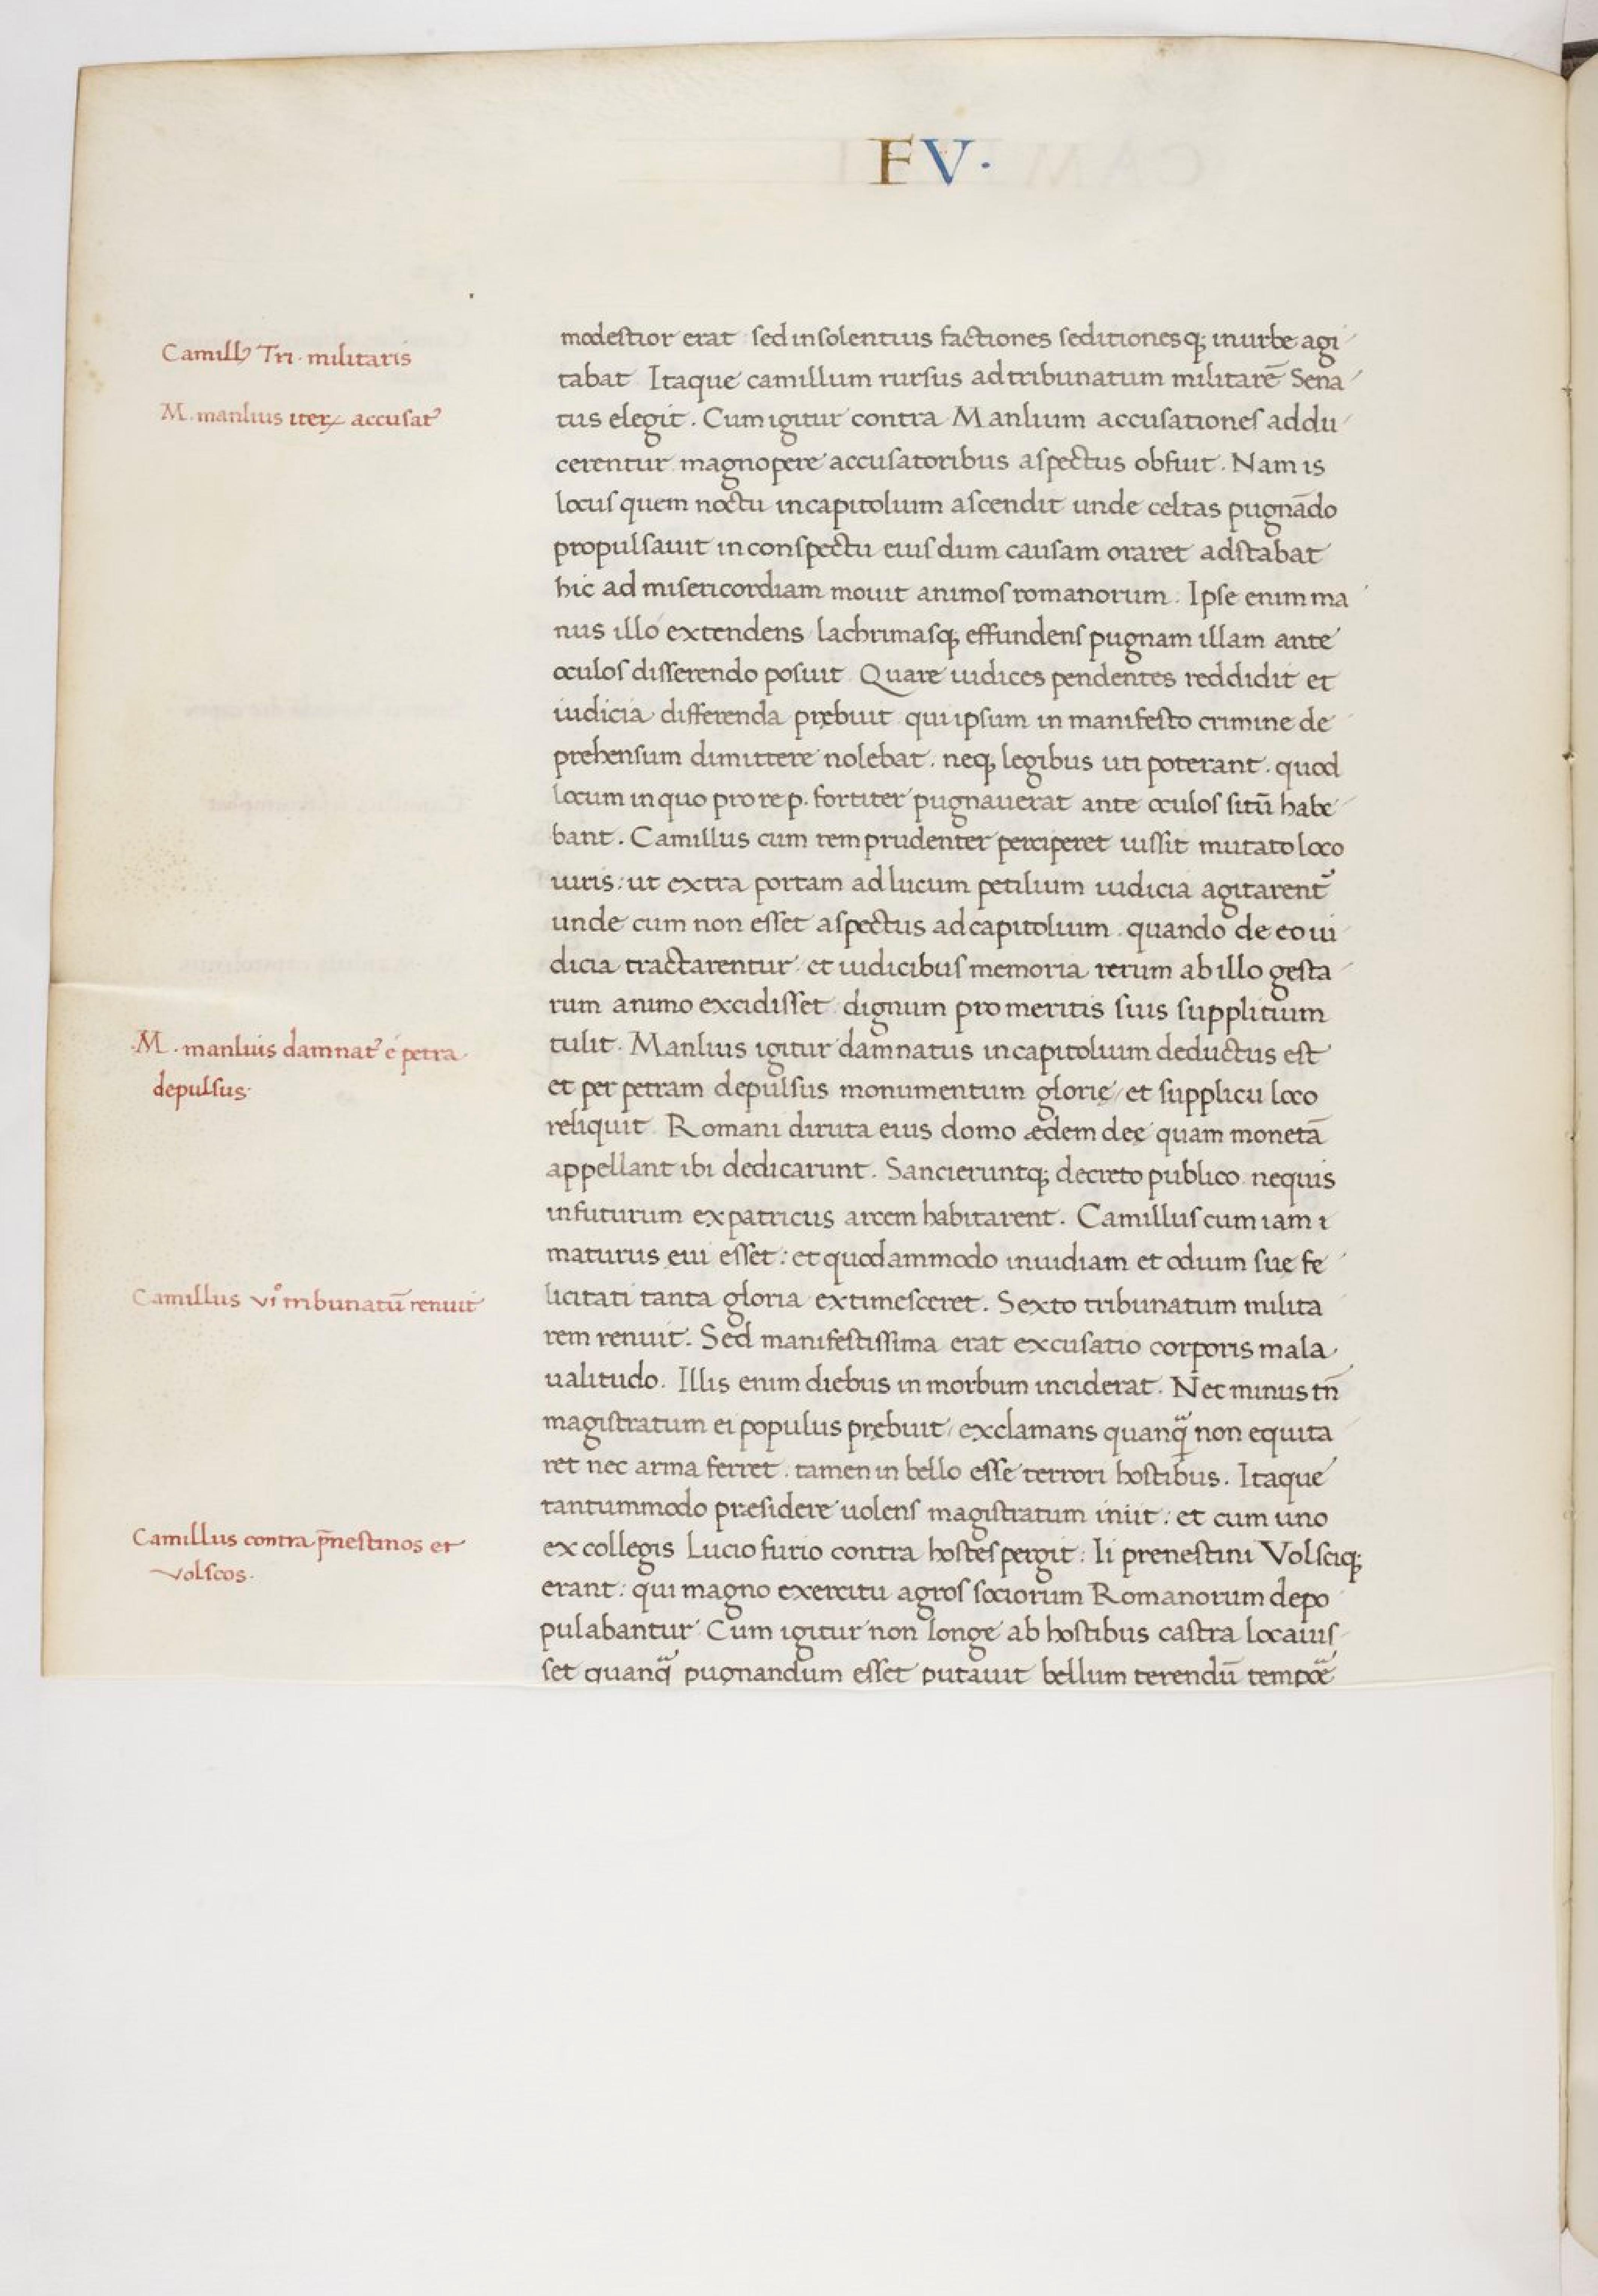 FV·
Camillꝰ Tri· militaris
M. manlius iteꝝ accusat᷑
modestior erat sed insolentius factiones seditionesq; in urbe agi
tabat Itaque camillum rursus ad tribunatum militarē Sena
tus elegit. Cum igitur contra Manlium accusationes addu
cerentur magnopere accusatoribus aspectus obfuit. Nam is
locus quem noctu in capitolium ascendit unde celtas pugnādo
propulsauit in conspectu eius dum causam oraret adstabat
hic ad misericordiam mouit animos romanorum. Ipse enim ma
nus illo extendens / lachrimasq; effundens pugnam illam ante
oculos disserendo posuit Quare iudices pendentes reddidit et
iudicia differenda prębuit qui ipsum in manifesto crimine de
prehensum dimittere nolebat. neq; legibus uti poterant. quod
locum in quo pro re p. fortiter pugnauerat ante oculos sitū habe
bant. Camillus cum rem prudenter perciperet iussit mutato loco
iuris: ut extra portam ad lucum petilium iudicia agitarent᷑
unde cum non esset aspectus ad capitolium. quando de eo iu
dicia tractarentur et iudicibus memoria rerum ab illo gesta
rum animo excidisset dignum pro meritis suis supplitium
tulit. Manlius igitur damnatus in capitolium deductus est
et per petram depulsus monumentum glorię / et supplicii loco
reliquit Romani diruta eius domo ædem deę quam monetā
appellant ibi dedicarunt. Sancieruntq; decreto publico nequis
in futurum ex patriciis arcem habitarent. Camillus cum iam i
maturus eui esset: et quodammodo inuidiam et odium suę fe
licitati tanta gloria extimesceret. Sexto tribunatum milita
rem renuit. Sed manifestissima erat excusatio corporis mala
ualitudo. Illis enim diebus in morbum inciderat. Nec minus tn̄
magistratum ei populus prębuit / exclamans quanqͣ non equita
ret nec arma ferret. tamen in bello esse terrori hostibus. Itaque
tantummodo præsidere uolens magistratum iniit: et cum uno
ex collegis Lucio furio contra hostes pergit: Ii prenestini Volsciq;
erant: qui magno exercitu agros sociorum Romanorum depo
pulabantur Cum igitur non longe ab hostibus castra locauis
set quanqͣ pugnandum esset putauit bellum terendū
M. manluis damnat᷑ é petra
depulsus·
Camillus vi° tribunatū renuit
Camillus contra p̄nestinos et
volscos.